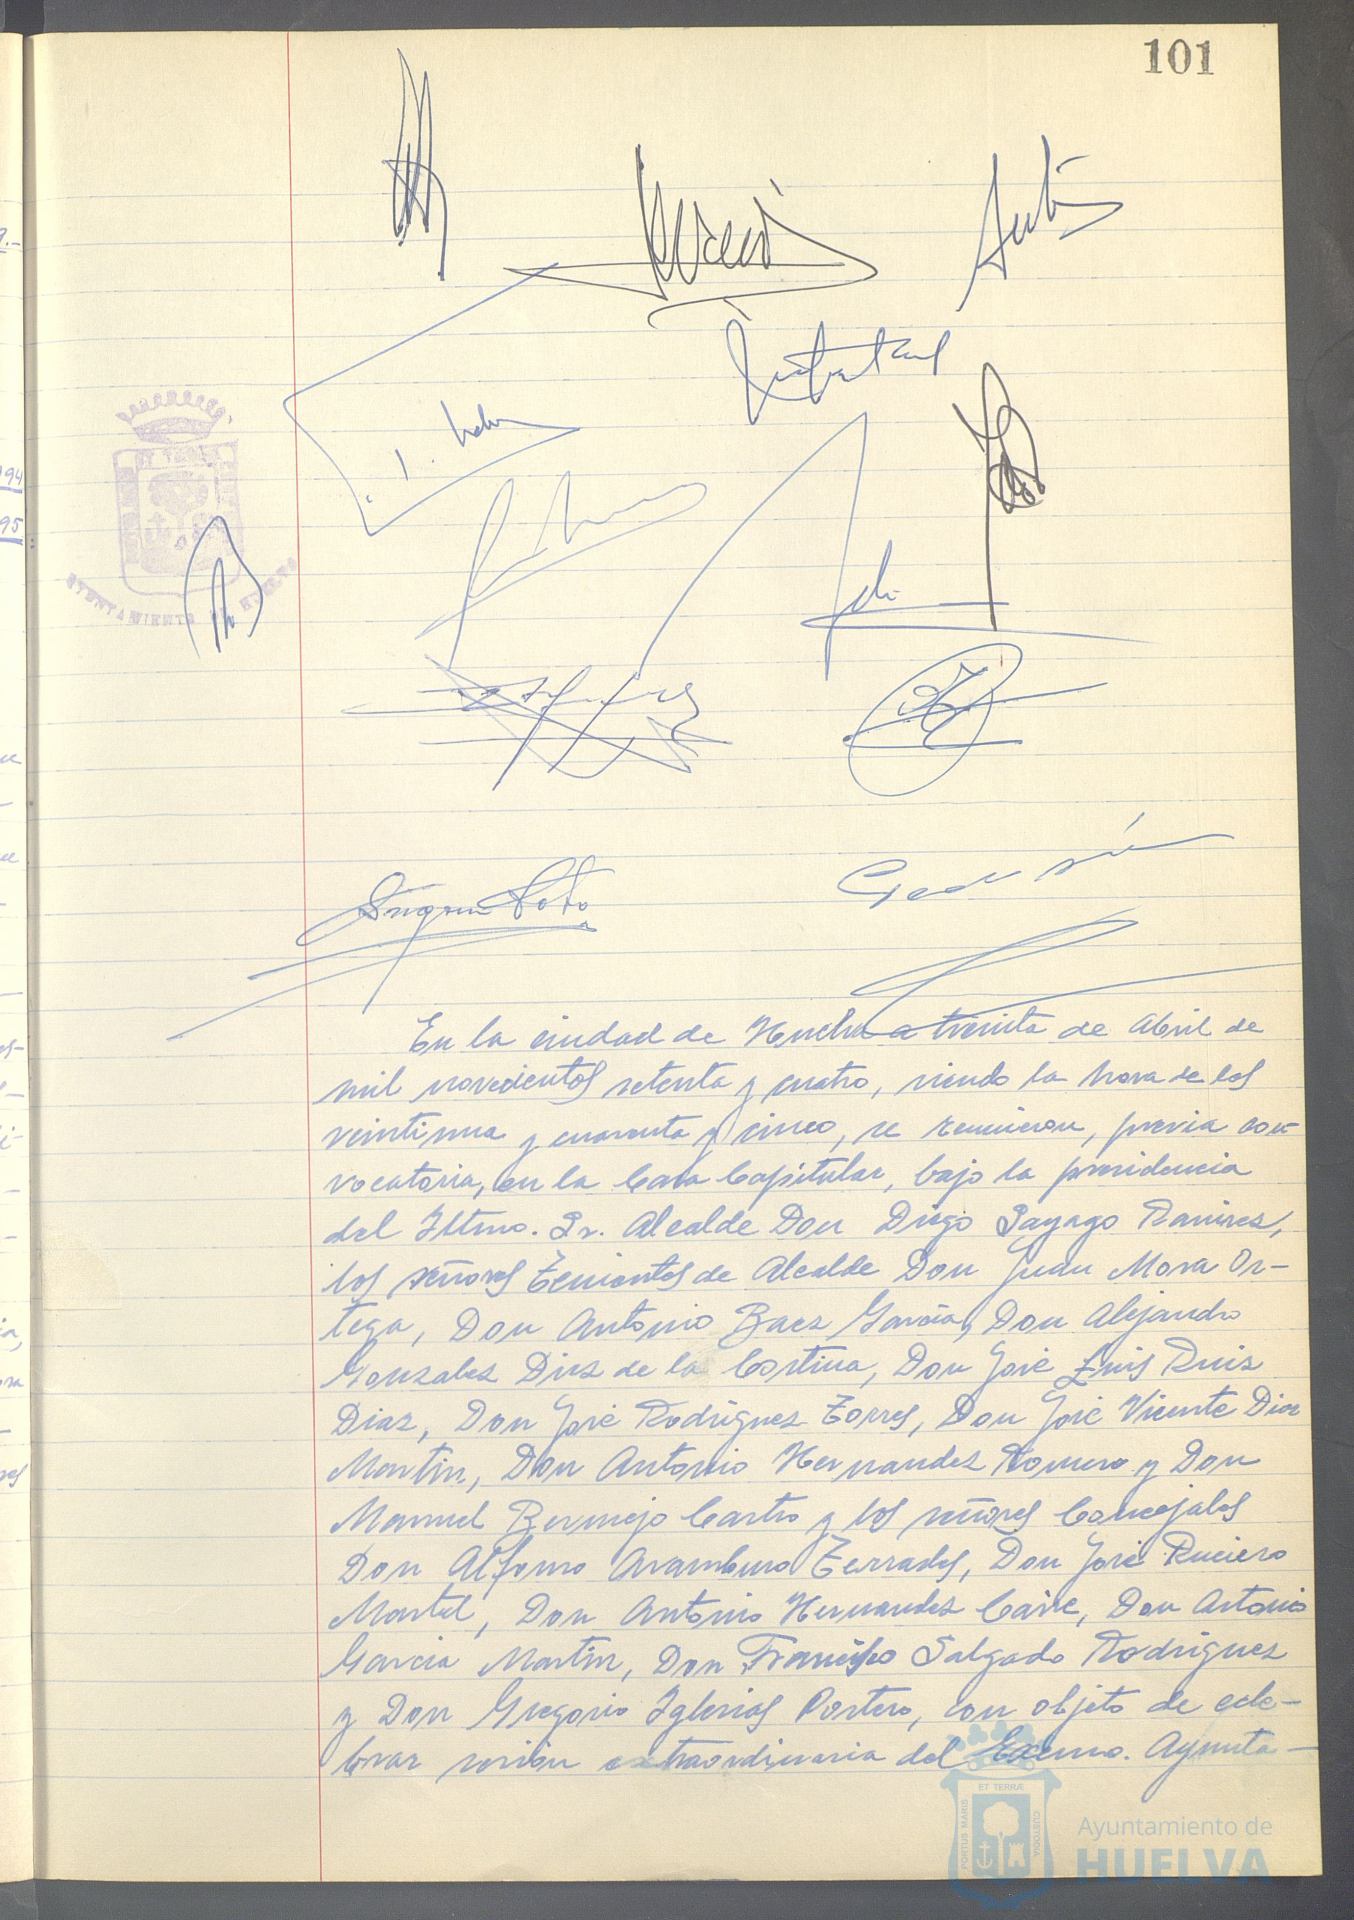 101
En la ciudad de Huelva a treinta de Abril de
mil novecientos setenta y cuatro, siendo la hora de las
veintiuna y cuarenta y cinco, se reunieron, previa con
vocatoria, en la Casa Capitular, bajo la presidencia
del Iltmo. Sr. Alcalde Don Diego Sayago Ramirez,
los señores Tenientes de Alcalde Don Juan Mora Or-
tega, Don Antonio Baez Garcia, Don Alejandro
Gonzalez Diez de la Cortina, Don José Luis Ruiz
Diaz, Don José Rodriguez Torres, Don José Vicente Diaz
Martin, Don Antonio Hernandez Romero y Don
Manuel Bermejo Castro y los señores Concejales
Don Alfonso Aramburo Terrades, Don José Ruciero
Martel, Don Antonio Hernandez Caire, Don Antonio
Garcia Martin, Don Francisco Salgado Rodriguez
y Don Gregorio Iglesias Portero, con objeto de cele-
brar sesion extraordinaria del Excmo. Ayunta-
AYUNTAMIENTO DE HUELVA
ET TERRÆ
PORTUS MARIS
CUSTODIA
Ayuntamiento de
HUELVA